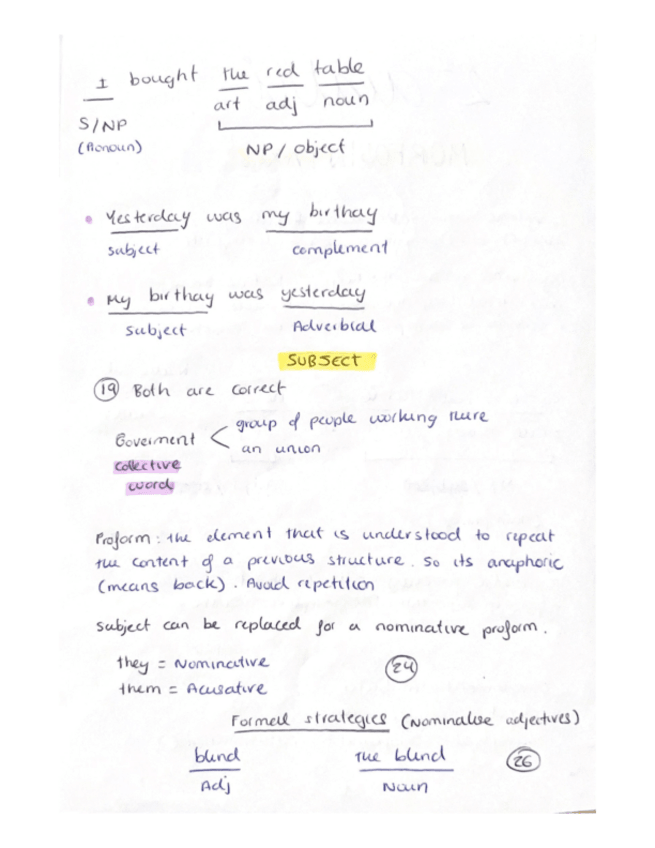 I bought the red table
art adj noun
S/NP
(Pronoun) NP / object
• Yesterday was my birthay
subject complement
• My birthay was yesterday
subject Adverbial
SUBJECT
19 Both are correct
Goverment < group of people working there
an union
collective
word
Proform: the element that is understood to repeat
the content of a previous structure. So its anaphoric
(means back). Avoid repetition
subject can be replaced for a nominative proform.
they = Nominative 24
them = Acusative
Formell strategies (Nominalise adjectives)
blind The blind 26
Adj Noun